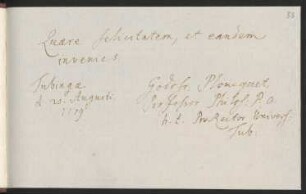 Quaere felicitatem, et eandem
invenies.
Tubingæ
d. 20. Augusti
1779
Godofr. Ploucquet
Professor Philos. P. O.
h. t. ProRector Universit.
Tub.